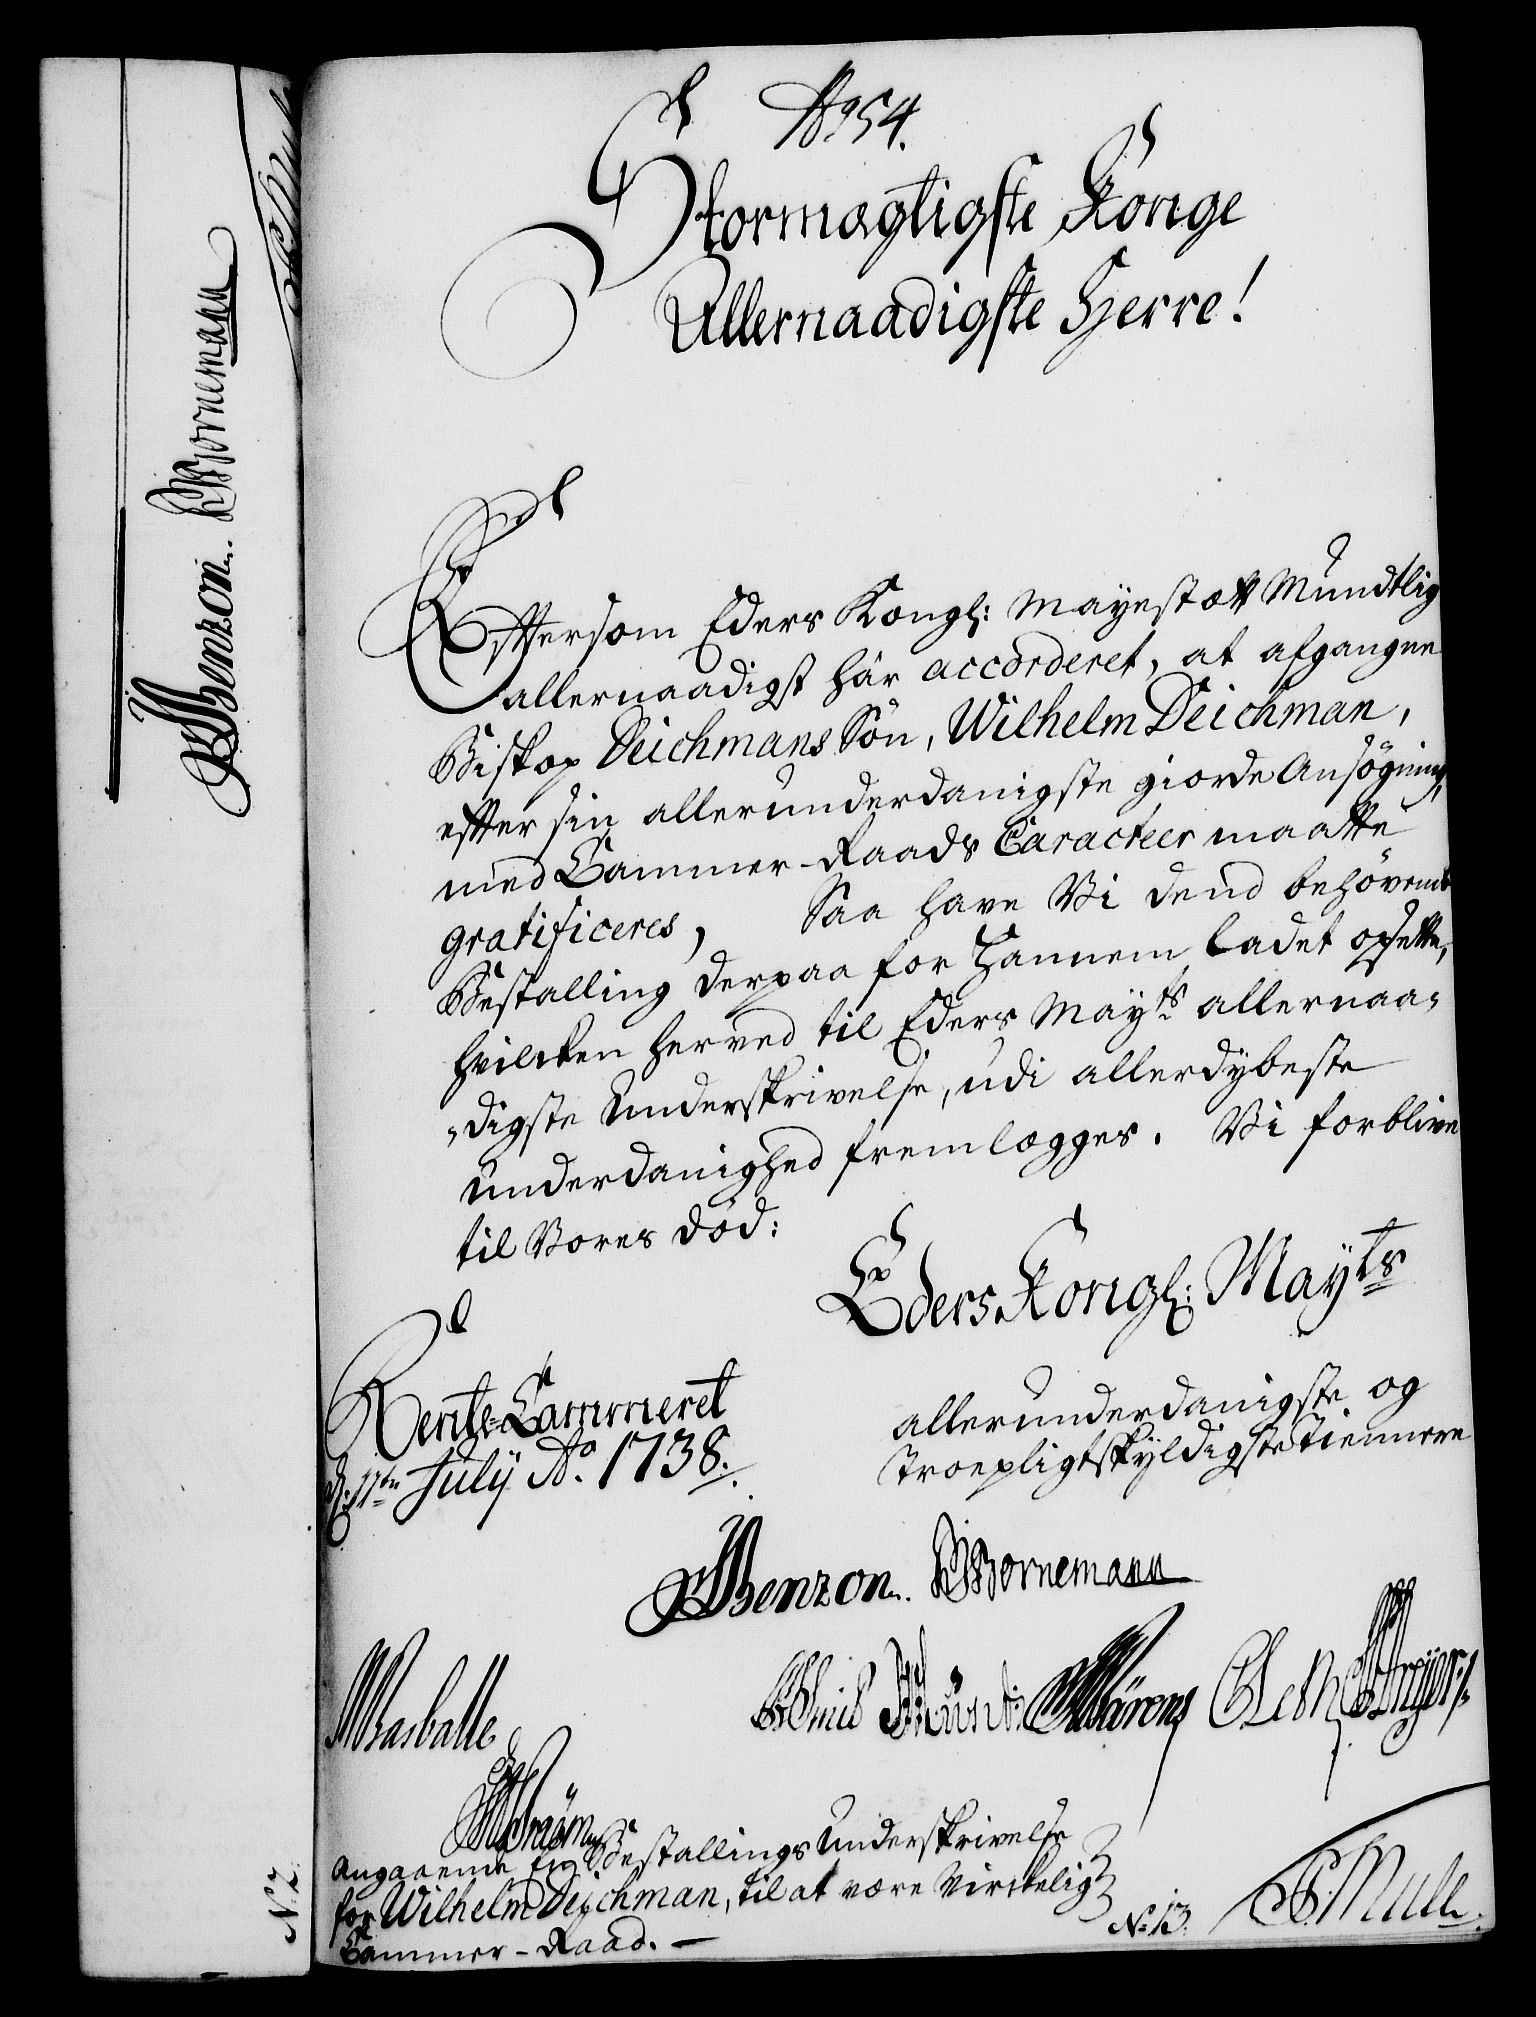 No 54.
Stormægtigste Konge
Allernaadigste Herre!
Eftersom Eders Kongl: Mayestætt Mundtlig
allernaadigst har accorderet, at afgangne
Biskop Deichmans Søn, Wilhelm Deichman,
efter sin allerunderdanigste giorde Ansøgning,
med Cammer-Raads Caracteer maatte
gratificeres, Saa have Vi dend behøvende
Bestalling derpaa for Hannem ladet opsette,
hvilcken herved til Eders Mayts allernaa-
-digste Underskrivelse, udi allerdybeste
underdanighed fremlegges. Vi forblive
til Vores død:
Eders Kongl: Mayts
Rente-Cammeret
d: 11te July Ao. 1738.
allerunderdanigste og
troepligtskyldigste tiennere
Benzon. Bornemann
Braëm
Angaaende En Bestallings Underskrivelse
for Wilhelm Deichman, til at være Virckelig
Cammer-Raad.
No 13.
Benzon. Bornemann
N. 2.